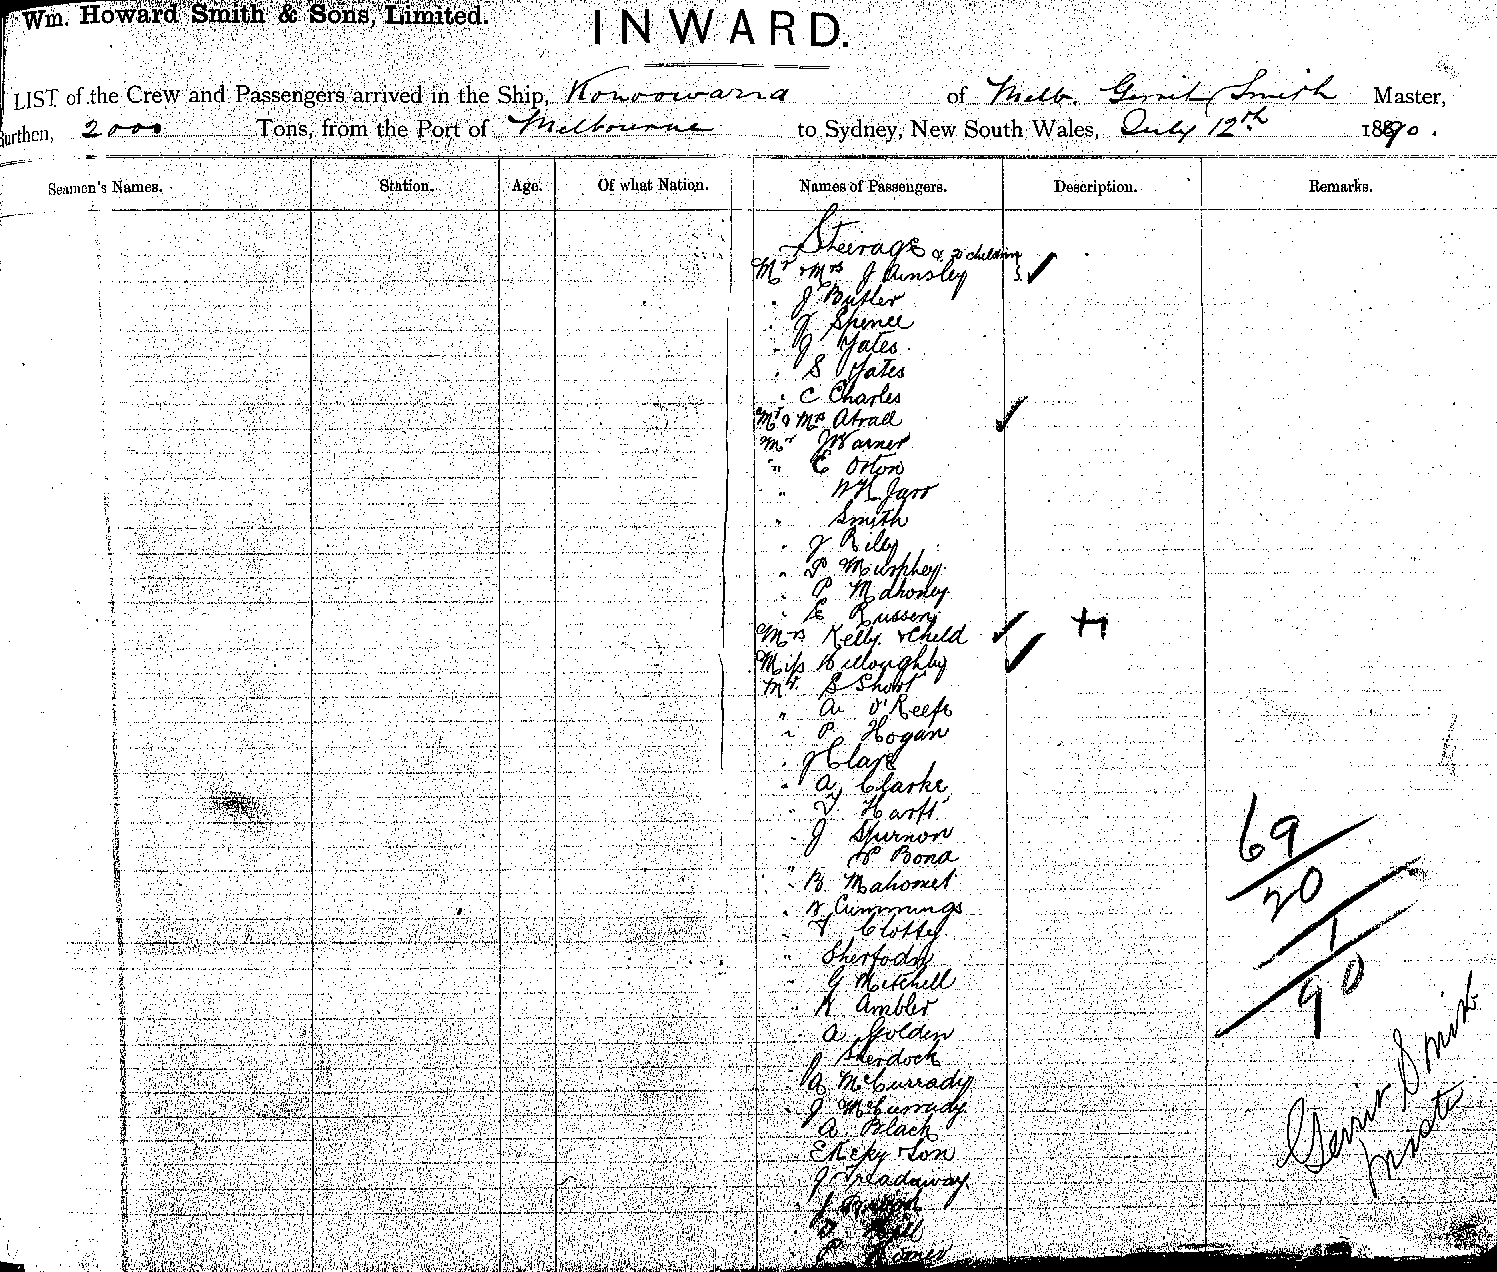 Wm. Howard Smith & Sons, Limited.
INWARD.
LIST of the Crew and Passengers arrived in the Ship, Konoowarra of Melb. Gerrit Smith Master,
Burthen, 2000 Tons, from the Port of Melbourne to Sydney, New South Wales, July 12th 1890.
Seamen's Names. Station. Age. Of what Nation. Names of Passengers. Description. Remarks.
Steerage
Mr & Mrs J Ainsley children
" J Butler
" J Spence
" J Yates
" S Yates
" C Charles
Mr & Mrs Atrall
Mr J Warner
" C Orton
" W H
" Smith
" J Riley
" P Murphey
" P Mahoney
" E
Mrs Kelly & Child
Miss Willoughby
Mr S Short
" A O'Keefe
" P Hogan
" J
" A Clarke
" Harft
" J Spurnon
" P Bond
" B Mahomet
" W Cummings
" Clottey
"
" G Mitchell
" H Ambler
" A Golden
" J Sherdock
" A McCurrady
" J McCurrady
" A Black
E Kepy & Son
J Treadaway
69
20
1
90
Gerrit Smith
Master